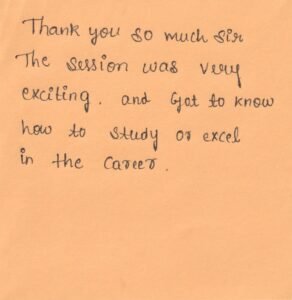 Thank you so much Sir
The session was very
exciting. and Got to know
how to study or excel
in the Career.